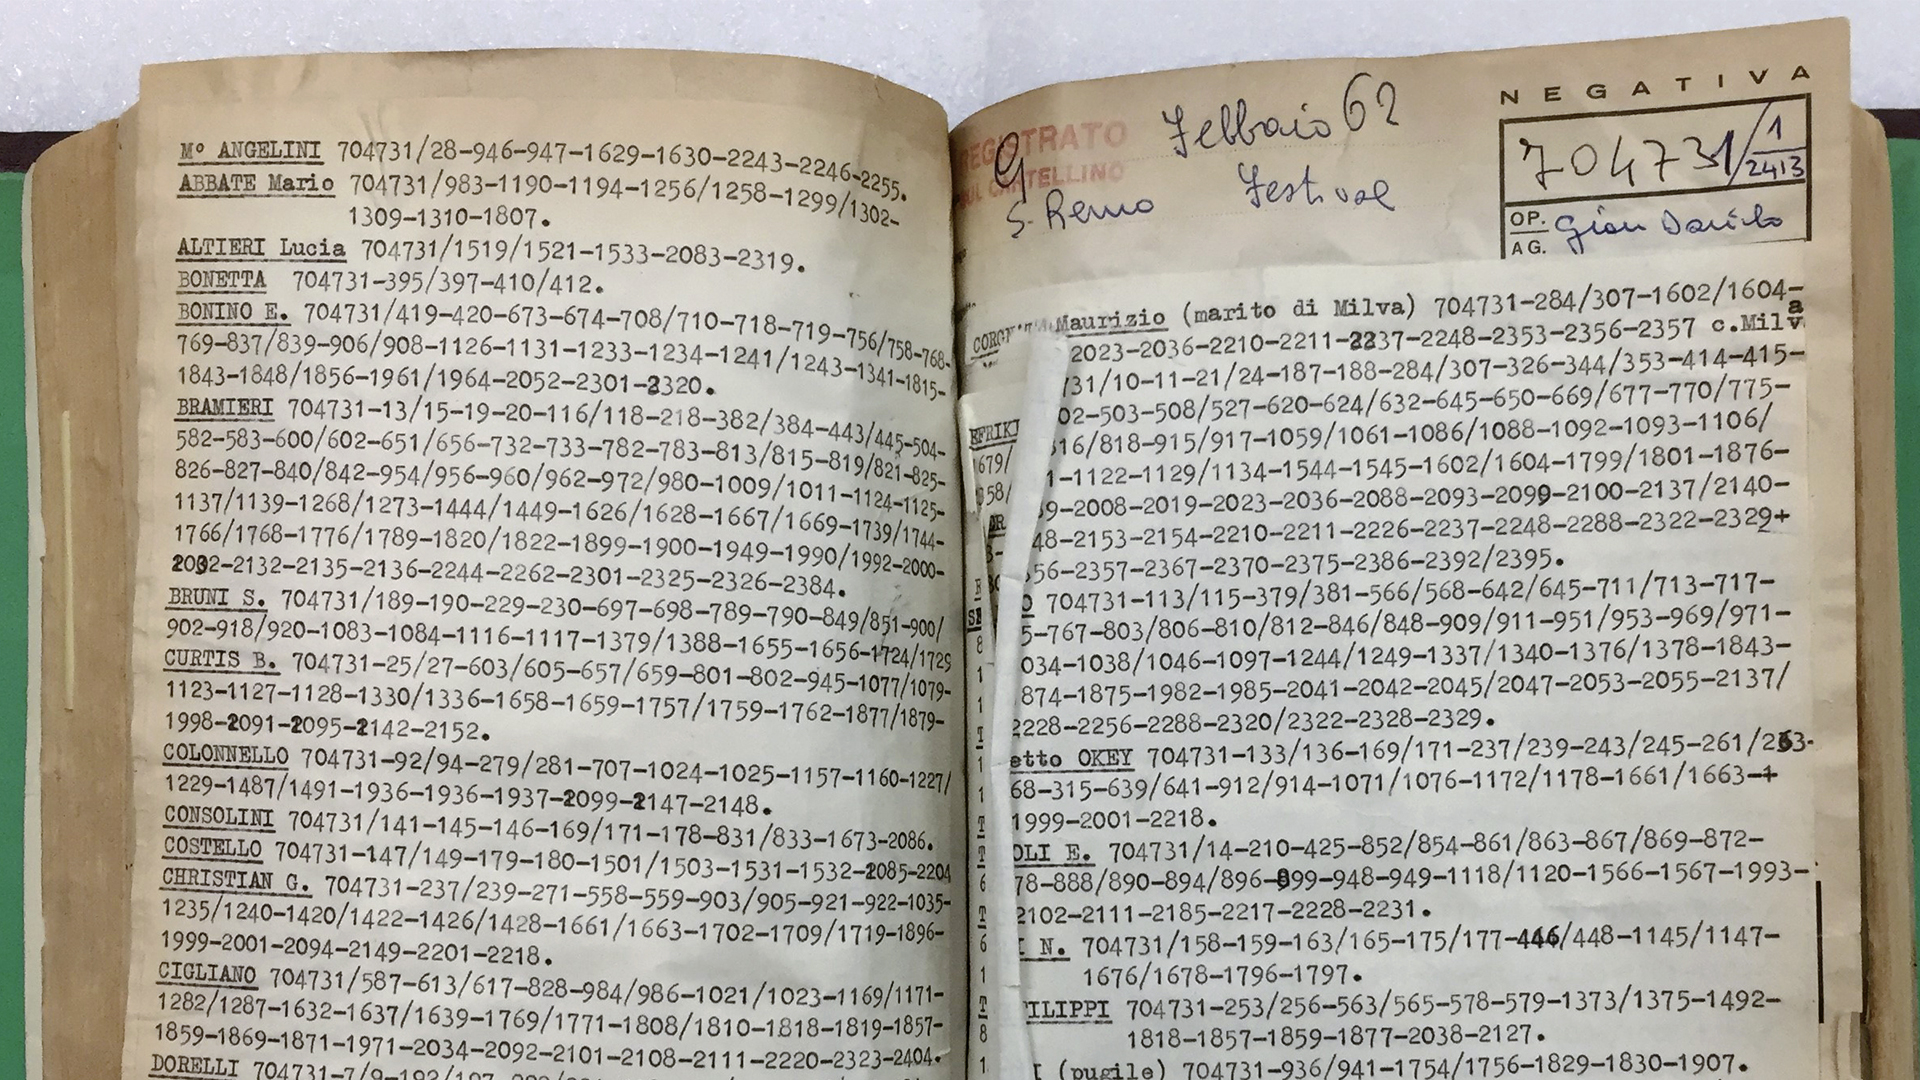 Mº ANGELINI 704731/28-946-947-1629-1630-2243-2246-2255.
ABBATE Mario 704731/983-1190-1194-1256/1258-1299/1302-
1309-1310-1807.
ALTIERI Lucia 704731/1519/1521-1533-2083-2319.
BONETTA 704731-395/397-410/412.
BONINO E. 704731/419-420-673-674-708/710-718-719-756/758-768-
769-837/839-906/908-1126-1131-1233-1234-1241/1243-1341-1815-
1843-1848/1856-1961/1964-2052-2301-2320.
BRAMIERI 704731-13/15-19-20-116/118-218-382/384-443/445-504-
582-583-600/602-651/656-732-733-782-783-813/815-819/821-825-
826-827-840/842-954/956-960/962-972/980-1009/1011-1124-1125-
1137/1139-1268/1273-1444/1449-1626/1628-1667/1669-1739/1744-
1766/1768-1776/1789-1820/1822-1899-1900-1949-1990/1992-2000-
2002-2132-2135-2136-2244-2262-2301-2325-2326-2384.
BRUNI S. 704731/189-190-229-230-697-698-789-790-849/851-900/
902-918/920-1083-1084-1116-1117-1379/1388-1655-1656-1724/1729
CURTIS B. 704731-25/27-603/605-657/659-801-802-945-1077/1079-
1123-1127-1128-1330/1336-1658-1659-1757/1759-1762-1877/1879-
1998-2091-2095-2142-2152.
COLONNELLO 704731-92/94-279/281-707-1024-1025-1157-1160-1227/
1229-1487/1491-1936-1936-1937-2099-2147-2148.
CONSOLINI 704731/141-145-146-169/171-178-831/833-1673-2086.
COSTELLO 704731-147/149-179-180-1501/1503-1531-1532-2085-2204
CHRISTIAN G. 704731-237/239-271-558-559-903/905-921-922-1035-
1235/1240-1420/1422-1426/1428-1661/1663-1702-1709/1719-1896-
1999-2001-2094-2149-2201-2218.
CIGLIANO 704731/587-613/617-828-984/986-1021/1023-1169/1171-
1282/1287-1632-1637/1639-1769/1771-1808/1810-1818-1819-1857-
1859-1869-1871-1971-2034-2092-2101-2108-2111-2220-2323-2404.
DORELLI 704731-7/9-192/197
NEGATIVA
REGISTRATO
SUL CARTELLINO
G Febbraio 62
S. Remo Festival
704731/1
2413
OP.
AG.
Gian Danilo
Maurizio (marito di Milva) 704731-284/307-1602/1604-
2023-2036-2210-2211-2237-2248-2353-2356-2357 c.Milva
731/10-11-21/24-187-188-284/307-326-344/353-414-415-
02-503-508/527-620-624/632-645-650-669/677-770/775-
816/818-915/917-1059/1061-1086/1088-1092-1093-1106/
1-1122-1129/1134-1544-1545-1602/1604-1799/1801-1876-
9-2008-2019-2023-2036-2088-2093-2099-2100-2137/2140-
48-2153-2154-2210-2211-2226-2237-2248-2288-2322-2329+
356-2357-2367-2370-2375-2386-2392/2395.
O 704731-113/115-379/381-566/568-642/645-711/713-717-
5-767-803/806-810/812-846/848-909/911-951/953-969/971-
034-1038/1046-1097-1244/1249-1337/1340-1376/1378-1843-
874-1875-1982-1985-2041-2042-2045/2047-2053-2055-2137/
2228-2256-2288-2320/2322-2328-2329.
etto OKEY 704731-133/136-169/171-237/239-243/245-261/263-
68-315-639/641-912/914-1071/1076-1172/1178-1661/1663-+
1999-2001-2218.
OLI E. 704731/14-210-425-852/854-861/863-867/869-872-
78-888/890-894/896-899-948-949-1118/1120-1566-1567-1993-
2102-2111-2185-2217-2228-2231.
I N. 704731/158-159-163/165-175/177-446/448-1145/1147-
1676/1678-1796-1797.
FILIPPI 704731-253/256-563/565-578-579-1373/1375-1492-
1818-1857-1859-1877-2038-2127.
I (pugile) 704731-936/941-1754/1756-1829-1830-1907.